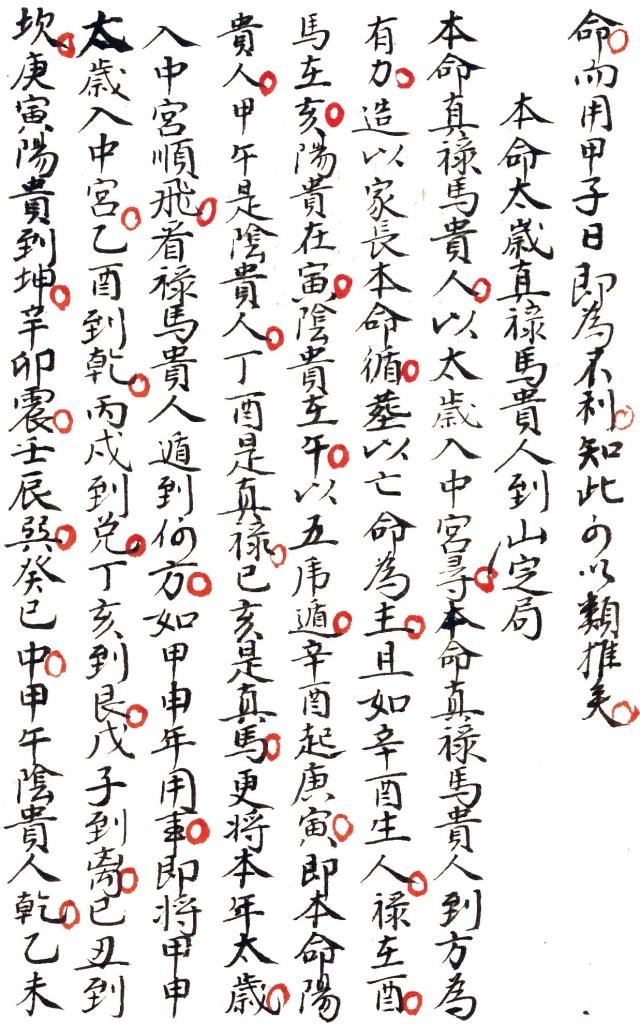 命而用甲子日即為不利知此可以類推矣
本命太歲真祿馬貴人到山定局
本命真祿馬貴人以太歲入中宮尋本命真祿馬貴人到方為
有力造以家長本命循葬以亡命為主且如辛酉生人祿在酉
馬在亥陽貴在寅陰貴在午以五虎遁辛酉起庚寅即本命陽
貴人甲午是陰貴人丁酉是真祿己亥是真馬更將本年太歲
入中宮順飛看祿馬貴人遁到何方如甲申年用事即將甲申
太歲入中宮乙酉到乾丙戌到兌丁亥到艮戊子到离己丑到
坎庚寅陽貴到坤辛卯震壬辰巽癸巳中甲午陰貴人乾乙未